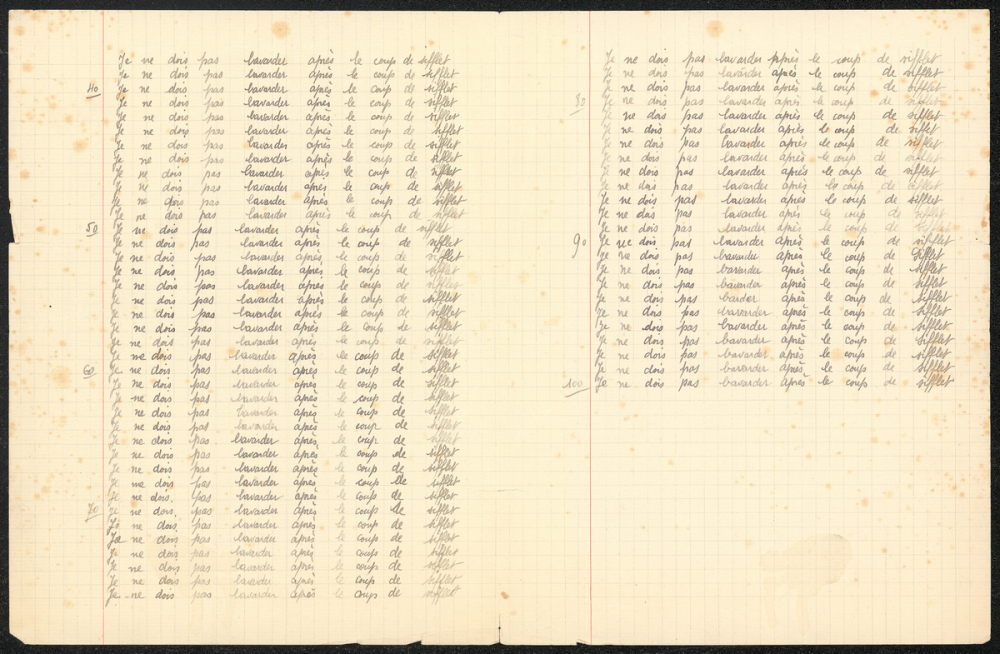 Je ne dois pas bavarder après le coup de sifflet
Je ne dois pas bavarder après le coup de sifflet
40 Je ne dois pas bavarder après le coup de sifflet
Je ne dois pas bavarder après le coup de sifflet
Je ne dois pas bavarder après le coup de sifflet
Je ne dois pas bavarder après le coup de sifflet
Je ne dois pas bavarder après le coup de sifflet
Je ne dois pas bavarder après le coup de sifflet
Je ne dois pas bavarder après le coup de sifflet
Je ne dois pas bavarder après le coup de sifflet
Je ne dois pas bavarder après le coup de sifflet
Je ne dois pas bavarder après le coup de sifflet
50 Je ne dois pas bavarder après le coup de sifflet
Je ne dois pas bavarder après le coup de sifflet
Je ne dois pas bavarder après le coup de sifflet
Je ne dois pas bavarder après le coup de sifflet
Je ne dois pas bavarder après le coup de sifflet
Je ne dois pas bavarder après le coup de sifflet
Je ne dois pas bavarder après le coup de sifflet
Je ne dois pas bavarder après le coup de sifflet
Je ne dois pas bavarder après le coup de sifflet
Je ne dois pas bavarder après le coup de sifflet
60 Je ne dois pas bavarder après le coup de sifflet
Je ne dois pas bavarder après le coup de sifflet
Je ne dois pas bavarder après le coup de sifflet
Je ne dois pas bavarder après le coup de sifflet
Je ne dois pas bavarder après le coup de sifflet
Je ne dois pas bavarder après le coup de sifflet
Je ne dois pas bavarder après le coup de sifflet
Je ne dois pas bavarder après le coup de sifflet
Je ne dois pas bavarder après le coup de sifflet
Je ne dois pas bavarder après le coup de sifflet
70 Je ne dois pas bavarder après le coup de sifflet
Je ne dois pas bavarder après le coup de sifflet
Je ne dois pas bavarder après le coup de sifflet
Je ne dois pas bavarder après le coup de sifflet
Je ne dois pas bavarder après le coup de sifflet
Je ne dois pas bavarder après le coup de sifflet
Je ne dois pas bavarder après le coup de sifflet
Je ne dois pas bavarder après le coup de sifflet
Je ne dois pas bavarder après le coup de sifflet
Je ne dois pas bavarder après le coup de sifflet
80 Je ne dois pas bavarder après le coup de sifflet
Je ne dois pas bavarder après le coup de sifflet
Je ne dois pas bavarder après le coup de sifflet
Je ne dois pas bavarder après le coup de sifflet
Je ne dois pas bavarder après le coup de sifflet
Je ne dois pas bavarder après le coup de sifflet
Je ne dois pas bavarder après le coup de sifflet
Je ne dois pas bavarder après le coup de sifflet
Je ne dois pas bavarder après le coup de sifflet
Je ne dois pas bavarder après le coup de sifflet
90 Je ne dois pas bavarder après le coup de sifflet
Je ne dois pas bavarder après le coup de sifflet
Je ne dois pas bavarder après le coup de sifflet
Je ne dois pas bavarder après le coup de sifflet
Je ne dois pas barder après le coup de sifflet
Je ne dois pas bavarder après le coup de sifflet
Je ne dois pas bavarder après le coup de sifflet
Je ne dois pas bavarder après le coup de sifflet
Je ne dois pas bavarder après le coup de sifflet
Je ne dois pas bavarder après le coup de sifflet
100 Je ne dois pas bavarder après le coup de sifflet